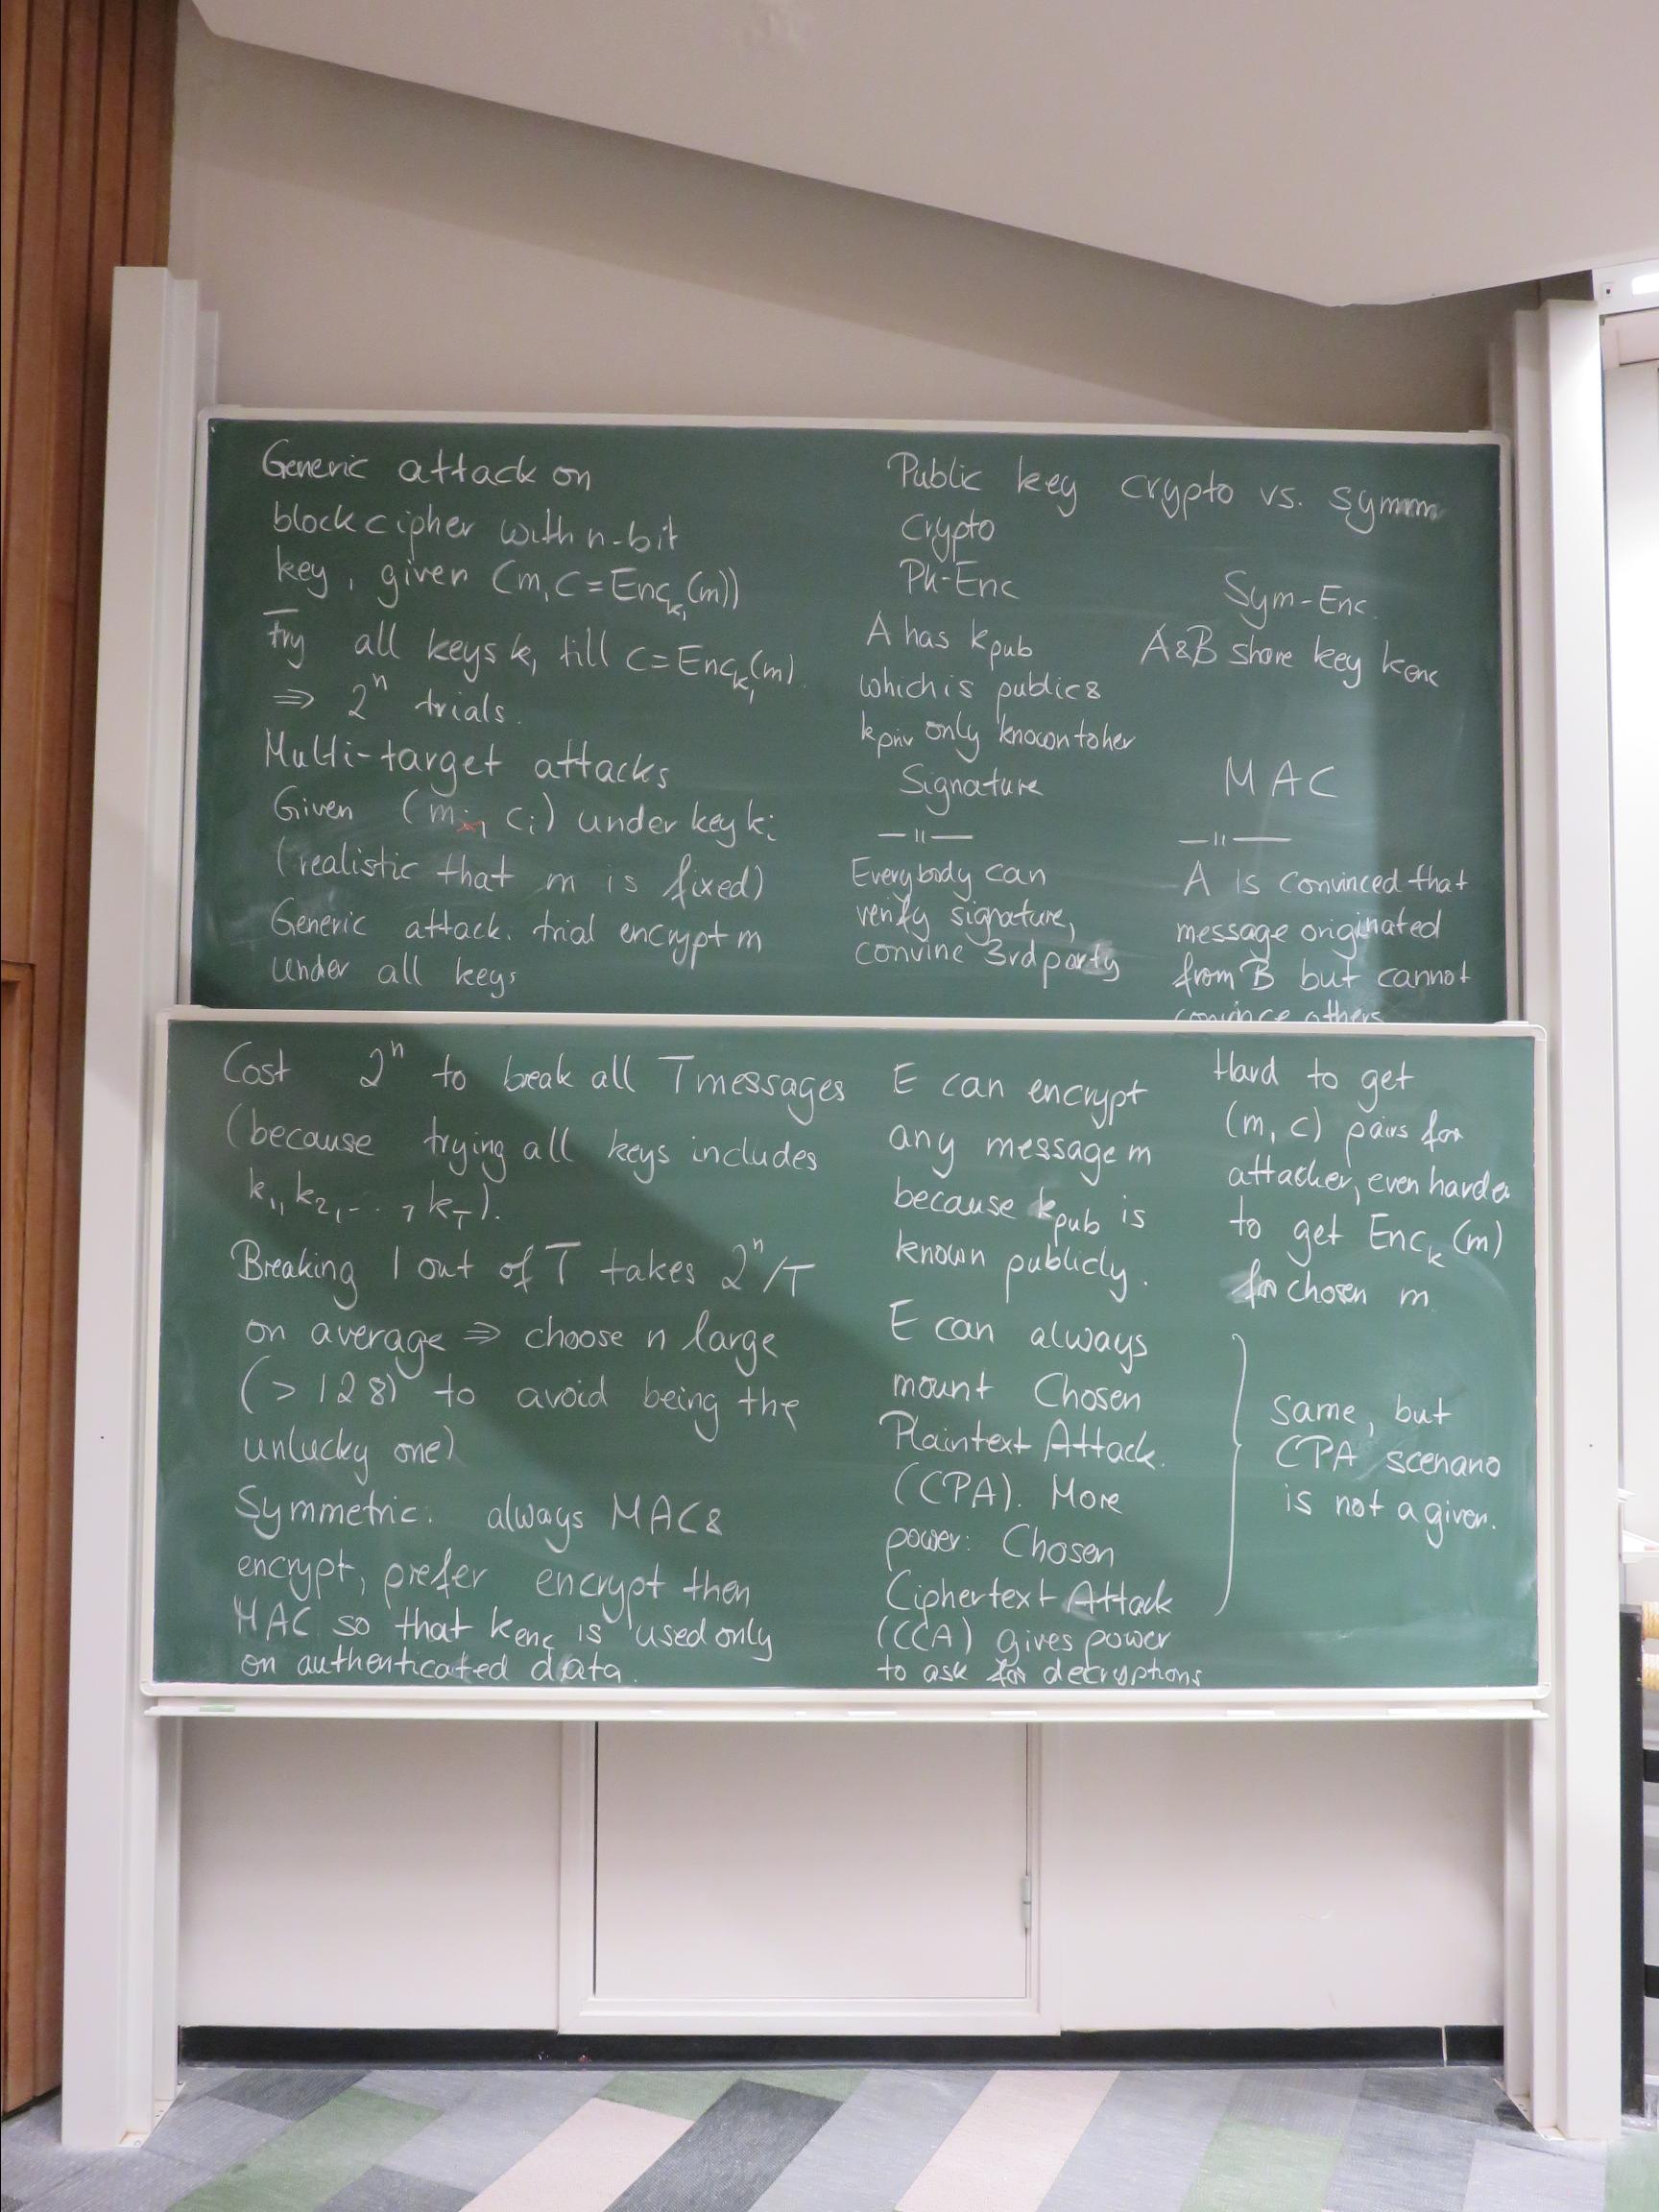 Generic attack on
block cipher with n-bit
key, given (m, c = Enc_k₁(m))
Try all keys k₁ till c = Enc_k₁(m).
⇒ 2ⁿ trials.
Multi-target attacks
Given (m, cᵢ) under key kᵢ
(realistic that m is fixed)
Generic attack: trial encrypt m
under all keys
Public key crypto vs. symm
crypto
Pk-Enc
A has k_pub
which is public &
k_priv only known to her
Signature
—〃—
Everybody can
verify signature,
convine 3rd party
Sym-Enc.
A&B share key k_enc
MAC
—〃—
A is convinced that
message originated
from B but cannot
convince others
Cost 2ⁿ to break all T messages
(because trying all keys includes
k₁, k₂, ..., k_T).
Breaking 1 out of T takes 2ⁿ/T
on average ⇒ choose n large
(>128) to avoid being the
unlucky one)
Symmetric: always MAC &
encrypt, prefer encrypt then
MAC so that k_enc is used only
on authenticated data.
E can encrypt
any message m
because k_pub is
known publicly.
E can always
mount Chosen
Plaintext Attack.
(CPA). More
power: Chosen
Ciphertext Attack
(CCA) gives power
to ask for decryptions
Hard to get
(m, c) pairs for
attacker, even harder
to get Enc_k(m)
for chosen m
Same, but
CPA scenario
is not a given.